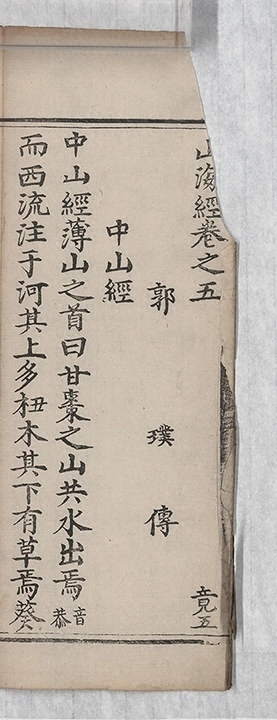 山海經卷之五 竟五
郭璞傳
中山經
中山經薄山之首曰甘棗之山共水出焉音恭
而西流注于河其上多杻木其下有草焉葵